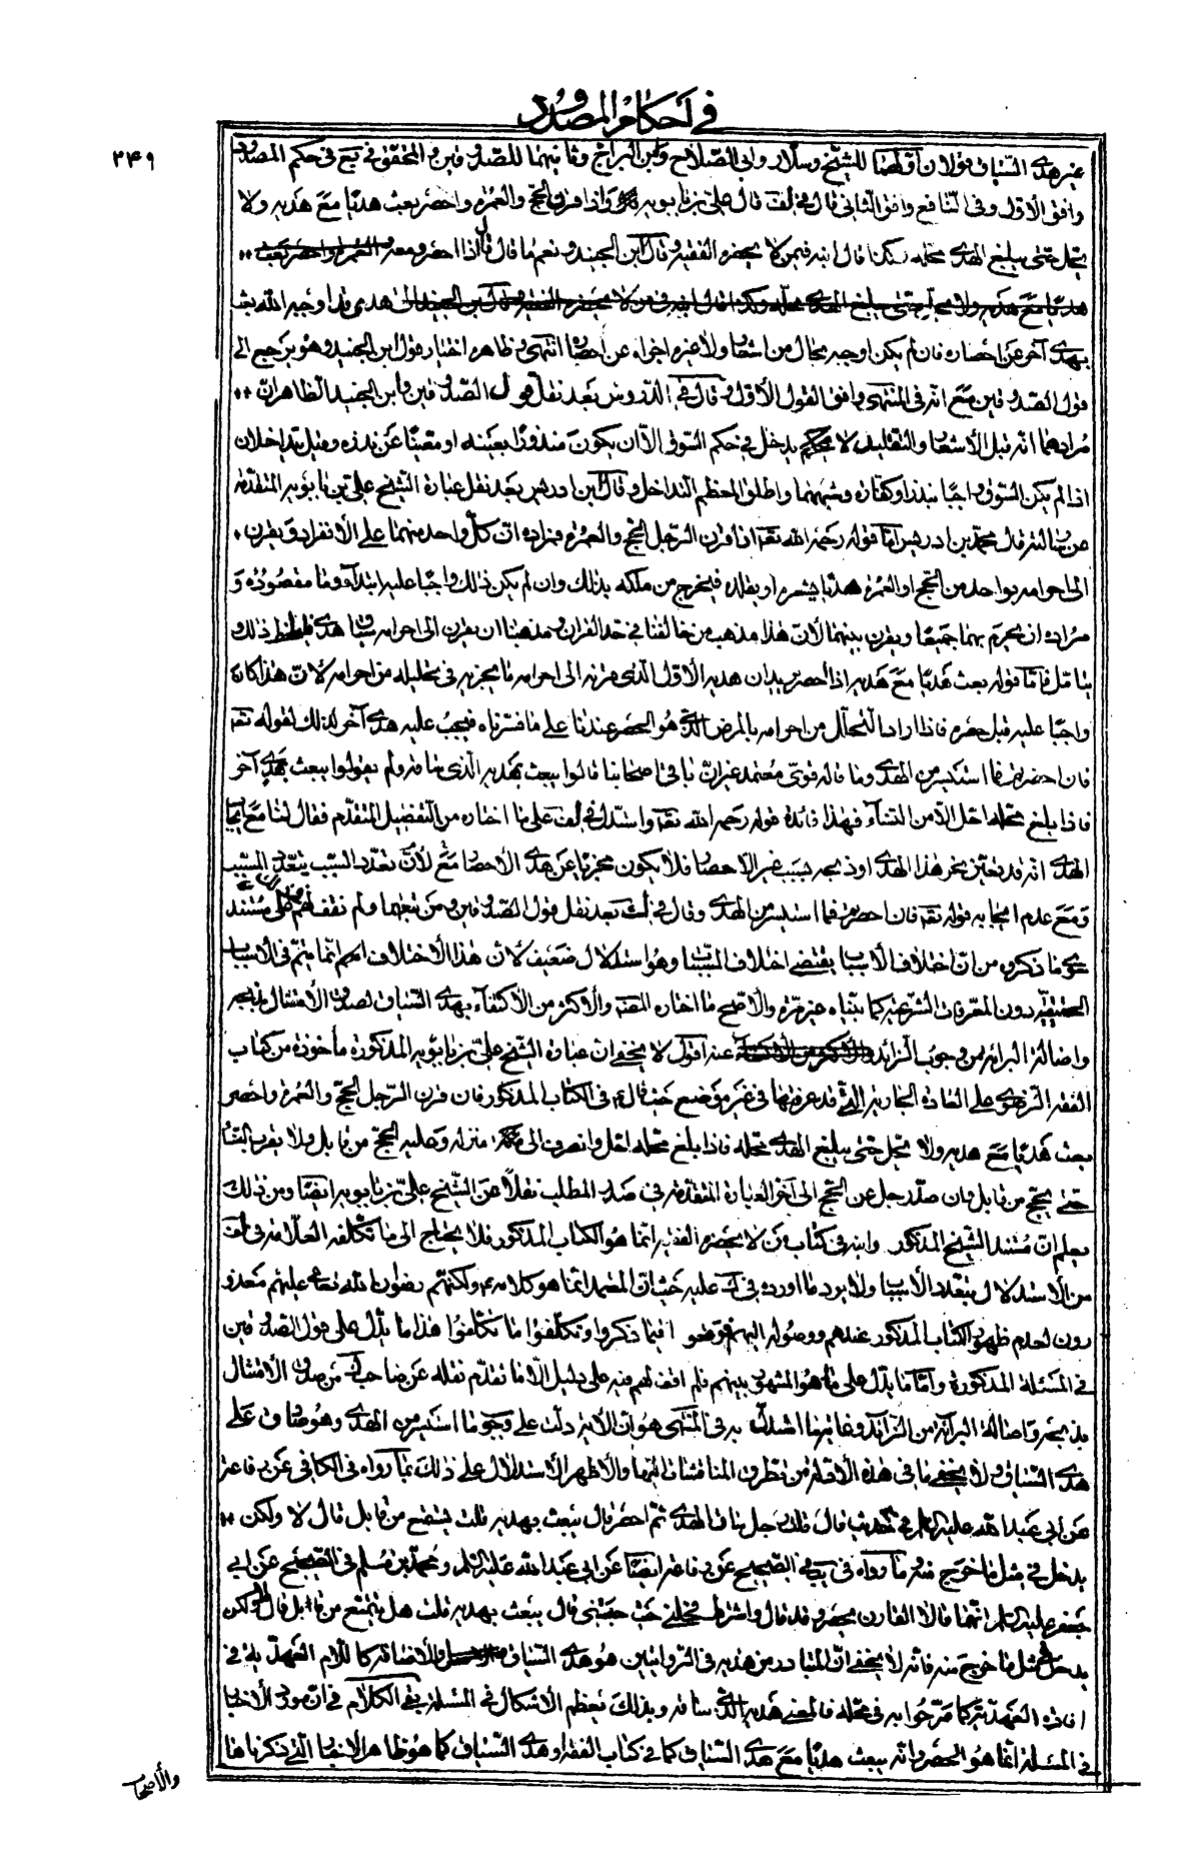 في أحكام المصدود
٣٤٩
غير هدي السياق قولان أولهما للشيخ وسلار وابي الصلاح وابن البراج وثانيهما للصدوقين والمحقق في يع في حكم المصدود
وافق الاول وفي النافع وافق الثاني قال في لف قال علي بن بابويه واذا قرن الحج والعمرة واحصر بعث هديا مع هديه ولا
يحل حتى يبلغ الهدي محله وكذا قال ابنه فيمن لا يحضره الفقيه وقال ابن الجنيد ونعم ما قال اذا احصر ومعه
هدي قد اوجبه الله بعث
بهدي آخر عن احصاره فان لم يكن اوجبه بحال من اشعار ولا غيره اجزاه عن احصاره انتهى وظاهره اختيار قول ابن الجنيد وهو يرجع الى
قول الصدوقين مع انه في المنتهى وافق القول الأول وقال في الدروس بعد نقل قول الصدوقين وابن الجنيد الظاهر ان
مرادهما انه قبل الاشعار والتقليد لا يدخل في حكم السوق الا ان يكون منذورا بعينه او معينا عن نذره وقيل يتداخلان
اذا لم يكن السوق واجبا بنذر او كفارة وشبههما واطلق المعظم التداخل وقال ابن ادريس بعد نقل عبارة الشيخ علي بن بابويه المتقدمة
عن رسالته قال محمد بن ادريس اما قوله رحمه الله تعه اذا قرن الرجل الحج والعمرة فمراده ان كل واحد منهما على الانفراد ويقرن
الى احرامه بواحد من الحج او العمرة هديا يشعره او يقلده فيخرج من ملكه بذلك وان لم يكن ذلك واجبا عليه ابتداء وما مقصوده و
مراده ان يحرم بهما جميعا ويقرن بينهما لان هذا مذهب من خالفنا في حد القران ومذهبنا ان يقرن الى احرامه سياق هدي فليلحظ ذلك
يتامل فاما قوله بعث هديا مع هديه اذا احصر يريد ان هديه الأول الذي قرنه الى احرامه ما يجزيه في تحليله من احرامه لان هذا كان
واجبا عليه قبل حصره فاذا اراد التحلل من احرامه بالمرض الذي هو الحصر عندنا على ما فسرناه فيجب عليه هدي آخر لذلك لقوله تعه
فان احصرتم فما استيسر من الهدي وما قاله قوي معتمد غير ان باقي اصحابنا قالوا يبعث بهديه الذي ساقه ولم يقولوا يبعث بهدي آخر
فاذا بلغ محله احل الا من النساء فهذا فائدة قوله رحمه الله تعه واستدل في لف على ما اختاره من التفصيل المتقدم فقال لنا مع ايجاب
الهدي انه قد تعين نحر هذا الهدي او ذبحه بسبب غير الاحصار فلا يكون مجزيا عن هدي الاحصار لان تعدد السبب يتعدد المسبب
ومع عدم ايجابه قوله تعه فان احصرتم فما استيسر من الهدي وقال في ك بعد نقل قول الصدوقين ومن تبعهما ولم نقف لهم على مستند
سوى ما ذكروه من ان اختلاف الأسباب يقتضي اختلاف المسببات وهو استدلال ضعيف لان هذا الاختلاف انما يتم في الأسباب
الحقيقية دون المعرفات الشرعية كما بيناه غير مرة والاصح ما اختاره المصه والاكثر من الاكتفاء بهدي السياق لصدق الامتثال بذبحه
واصالة البراءة من وجوب الزائد عنه اقول لا يخفى ان عبارة الشيخ علي بن بابويه المذكورة مأخوذة من كتاب
الفقه الرضوي على العادة الجارية التي قد عرفتها في غير موضع حيث قال ع في الكتاب المذكور فان قرن الرجل الحج والعمرة واحصر
بعث هديا مع هديه ولا يحل حتى يبلغ الهدي محله فاذا بلغ محله احل وانصرف الى منزله وعليه الحج من قابل ولا يقرب النساء
حتى يحج من قابل وان صد رجل عن الحج الى آخر العبارة المتقدمة في صدر المطلب نقلا عن الشيخ علي بن بابويه ايضا ومن ذلك
يعلم ان مستند الشيخ المذكور وابنه في كتاب من لا يحضره الفقيه انما هو الكتاب المذكور فلا يحتاج الى ما تكلفه العلامة في لف
من الاستدلال بتعدد الأسباب ولا يرد ما اورده في ك عليه حيث ان المعتمد انما هو كلامه ع ولكنهم رضوان الله تعالى عليهم معذو
رون لعدم ظهور الكتاب المذكور عندهم ووصوله اليهم فوقعوا فيما ذكروا وتكلفوا ما تكلفوا هذا ما يدل على قول الصدوقين
في المسئلة المذكورة واما ما يدل على ما هو المشهور بينهم فلم اقف لهم فيه على دليل الا ما تقدم نقله عن صاحب ك من صدق الامتثال
بذبحه واصالة البراءة من الزائد وغايتها استدل به في المنتهى هو ان الاية دلت على وجوب ما استيسر من الهدي وهو صادق على
هدي السياق ولا يخفى ما في هذه الأدلة من تطرق المناقشات اليها والاظهر الاستدلال على ذلك بما رواه في الكافي عن رفاعة
عن ابي عبد الله عليه السلام في حديث قال قلت رجل ساق الهدي ثم احصر قال يبعث بهديه قلت يتمتع من قابل قال لا ولكن
يدخل في مثل ما خرج منه وما رواه في يب في الصحيح عن رفاعة ايضا عن ابي عبد الله عليه السلام ومحمد بن مسلم في الصحيح عن ابي
جعفر عليه السلام انهما قالا القارن يحصر وقد قال واشترط فحلني حيث حبستني قال يبعث بهديه قلت هل يتمتع من قابل قال لا ولكن
يدخل في مثل ما خرج منه فانه لا يخفى ان المتبادر من هديه في الروايتين هو هدي السياق والاضافة كاللام العهدية في
افادة العهدية كما صرحوا به في محله فالمعنى هديه الذي ساقه وبذلك يعظم الاشكال في المسئلة بقي الكلام في ان مورد الاخبار
في المسئلة انما هو الحصر وانه يبعث هديا مع هدي السياق كما في كتاب الفقه او هدي السياق كما هو ظاهر الاخبار التي ذكرناها
والأصحاب